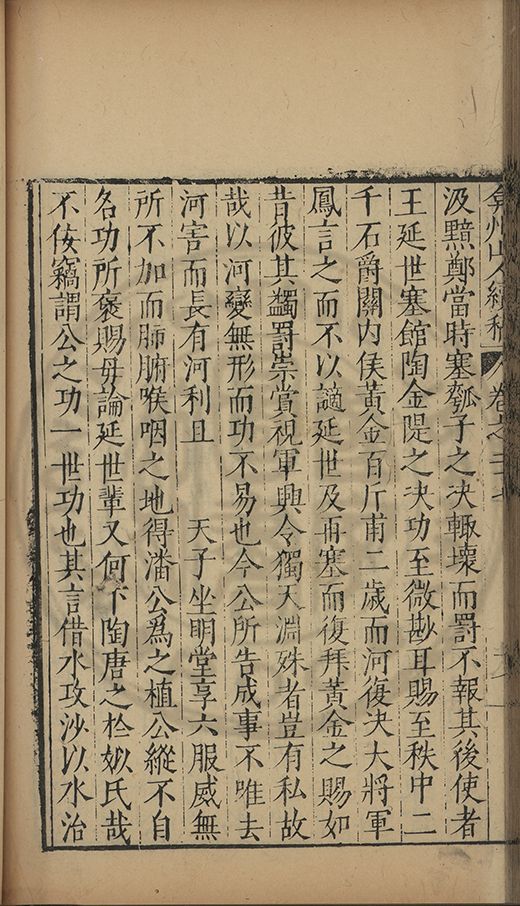 弇州山人續稿 卷之二十七
汲黯鄭當時塞瓠子之決輙壞而罰不報其後使者
王延世塞館陶金隄之決功至微尠耳賜至秩中二
千石爵關內侯黃金百斤甫二歲而河復決大將軍
鳳言之而不以讁延世及再塞而復拜黃金之賜如
昔彼其蠲罰崇賞視軍興令獨天淵殊者豈有私故
哉以河變無形而功不易也今公所告成事不唯去
河害而長有河利且 天子坐明堂享六服威無
所不加而肺腑喉咽之地得潘公爲之植公縱不自
名功所褒賜毋論延世輩又何下陶唐之於姒氏哉
不佞竊謂公之功一世功也其言借水攻沙以水治